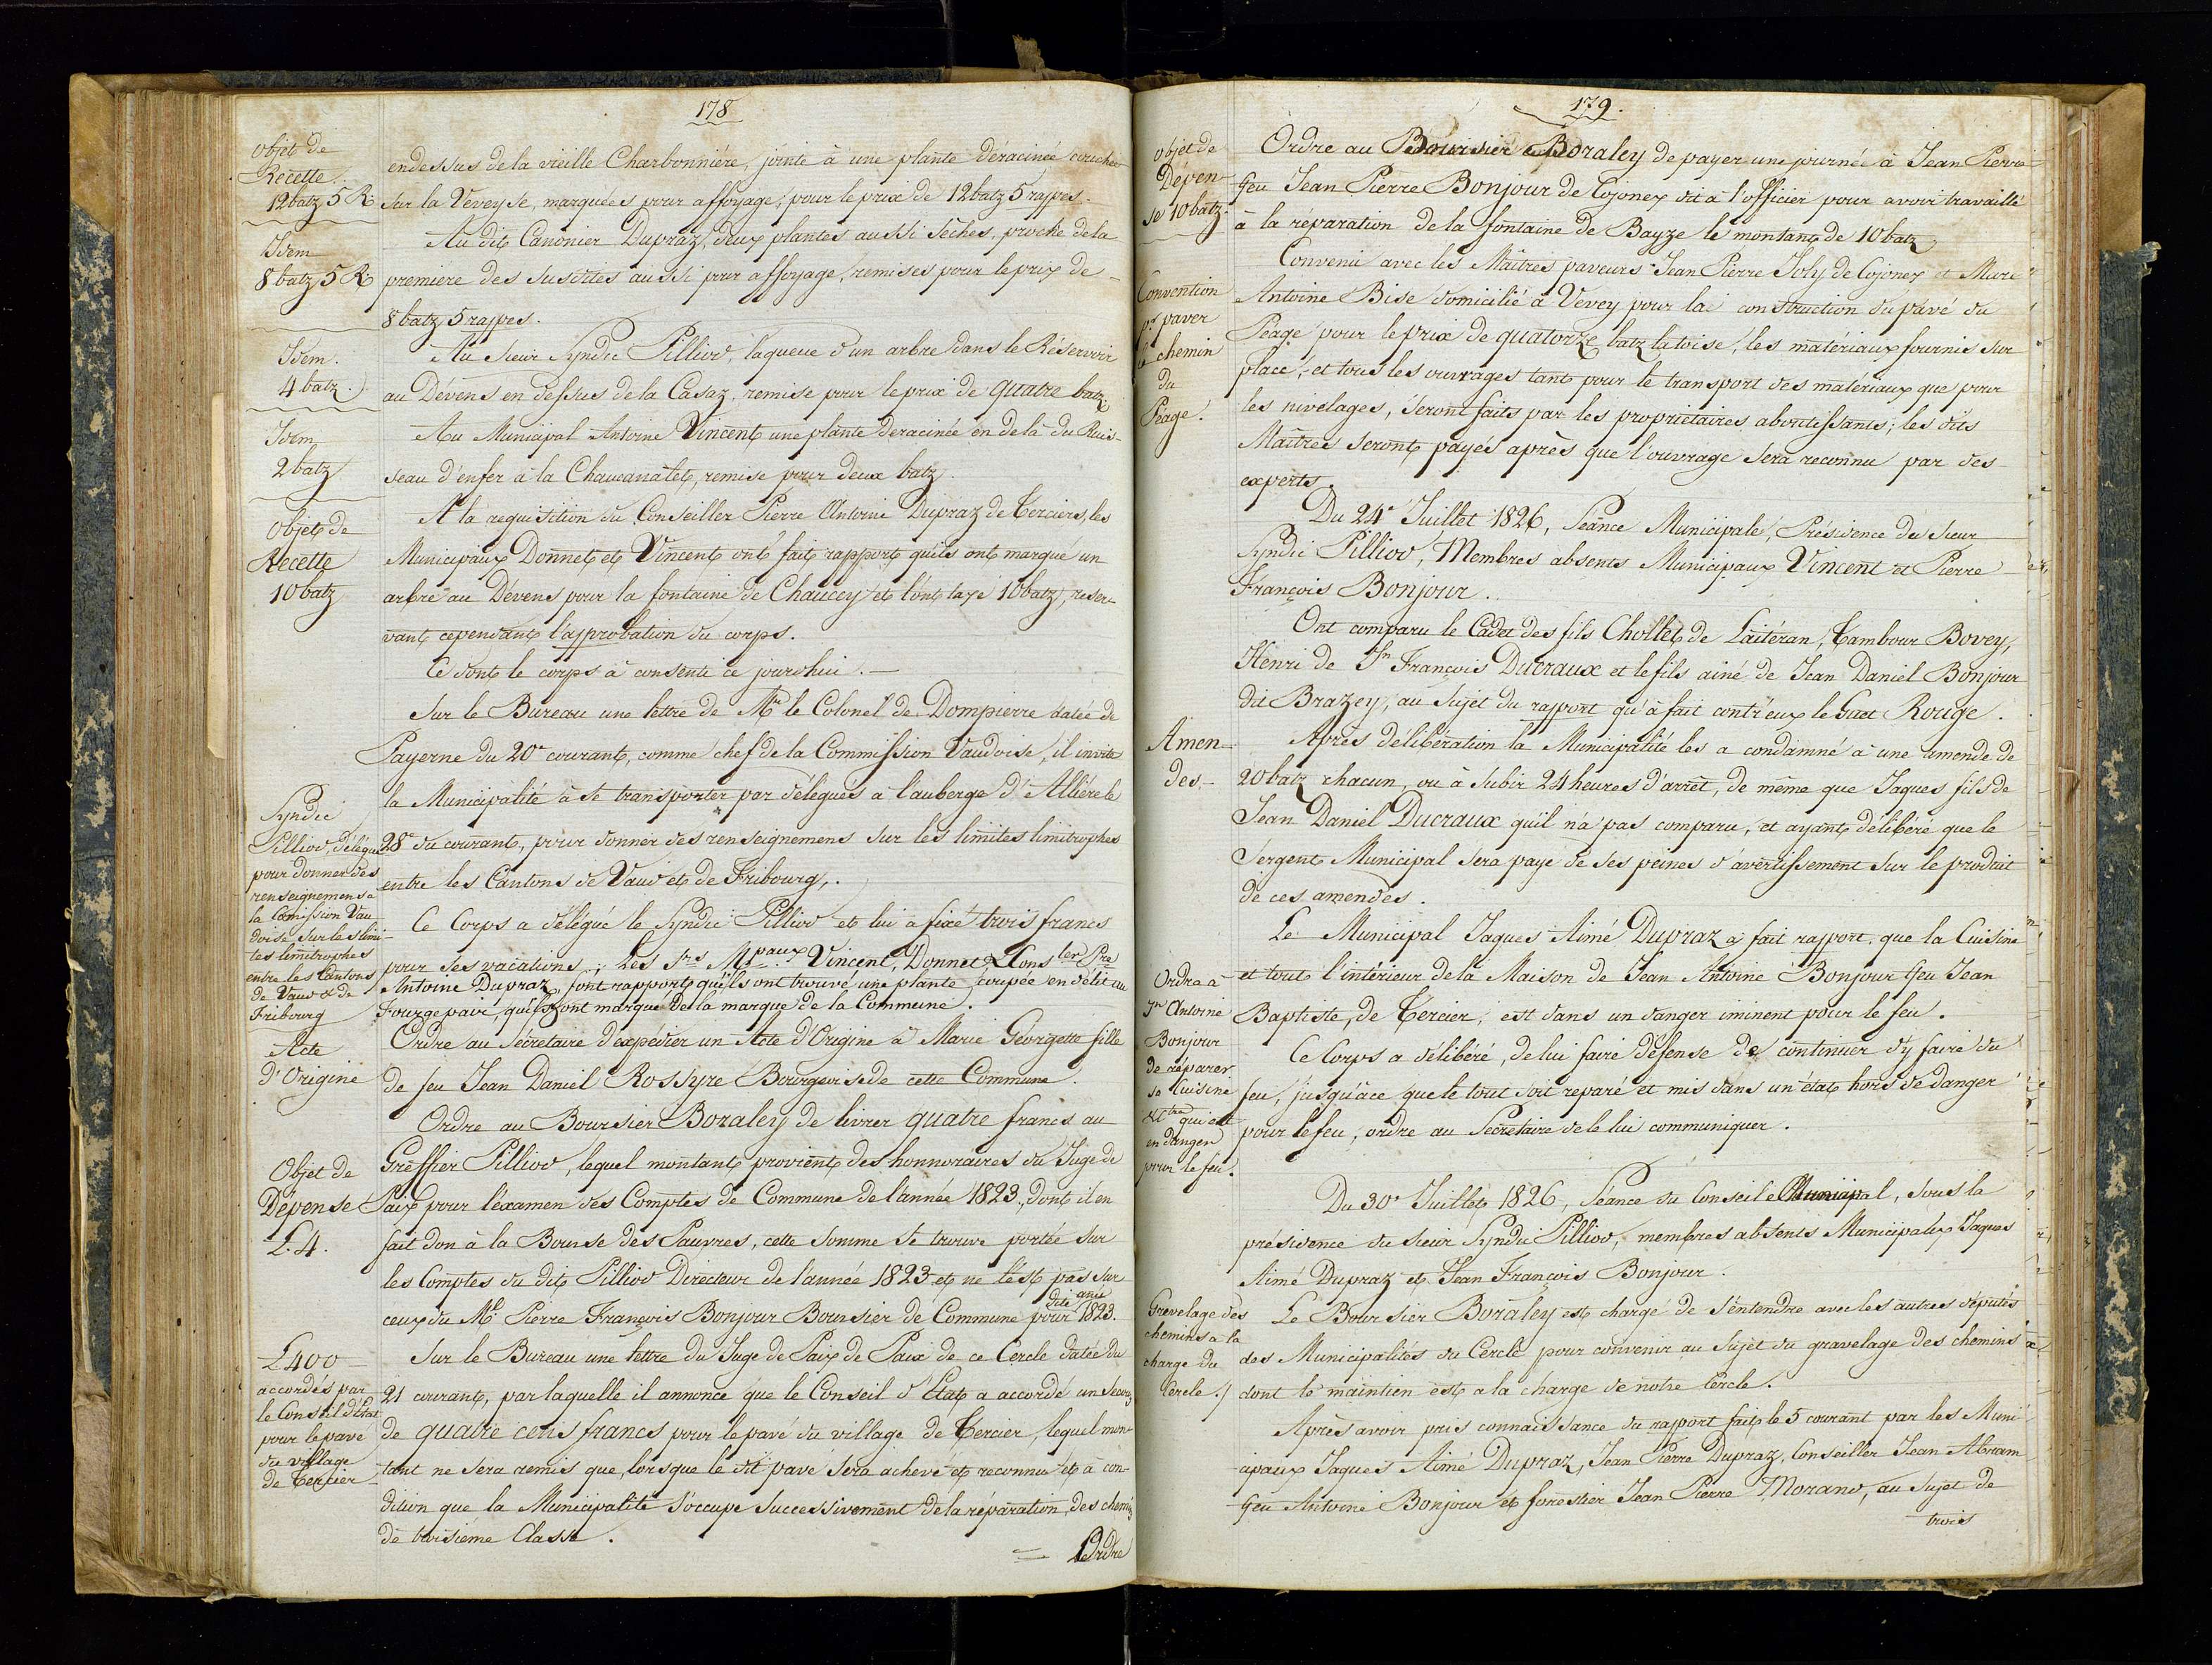 178
objet de
Recette
12 batz 5 R
endessus de la vieille Charbonniére, jointe à une plante déracinée couchée
sur la Veveyse, marquées pour affoyage, pour le prix de 12 batz 5 rappes.
Idem
8 batz 5 R
Au dit Canonier Dupraz, deux plantes aussi sèches, proche de la
premiere des susdites aussi pour affoyage, remises pour le prix de
8 batz 5 rappes.
Idem.
4 batz.
Au sieur Syndic Pilliod, la queue d'un arbre dans le Réservoir
au Dévens en dessus de la Casaz, remise pour le prix de quatre batz.
Idem
2 batz
Au Municipal Antoine Vincent une plante deracinée en delà du Ruis-
seau d'enfer à la Chaucanatet, remise pour deux batz.
Objet de
Recette
10 batz
A la requisition du Conseiller Pierre Antoine Dupraz de Terciers, les
Municipaux Donnet et Vincent ont fait rapport qu'ils ont marqué un
arbre au Dévens pour la fontaine de Chaucey et l'ont taxé 10 batz, reser-
vant cependant l'approbation du corps.
Ce dont le corps à consenti ce jourdhui. —
Sur le Bureau une lettre de Mr le Colonel de Dompierre datée de
Payerne du 20e courant, comme chef de la Commission Vaudoise, il invite
la Municipalité à se transporter par délégués à l'auberge d'Alliére le
28e du courant, pour donner des renseignemens sur les limites limitrophes
entre les Cantons de Vaud et de Fribourg.
Syndic
Pilliod, délégué
pour donner des
renseignemens a
la Comission Vau-
doise sur les limi-
tes limitrophes
entre les Cantons
de Vaud & de
Fribourg
Ce Corps a délégué le Syndic Pilliod et lui a fixé trois francs
pour ses vacations; Les Srs Mpaux Vincent, Donnet & Consler Pre
Antoine Dupraz, font rapport qu'ils ont trouvé une plante coupée en délit au
Fourgepaix, qu'ils ont marqué de la marque de la Commune.
Acte
d'Origine
Ordre au Sécretaire d'expédier un Acte d'Origine à Marie Géorgette fille
de feu Jean Daniel Rossyre Bourgeoise de cette Commune.
Objet de
Dépense
L. 4.
Ordre au Boursier Boraley de livrer quatre francs au
Greffier Pilliod, lequel montant provient des honnoraires du Juge de
Paix pour l'éxamen des Comptes de Commune de l'année 1823, dont il en
fait don à la Bourse des Pauvres, cette somme se trouve portée sur
les Comptes du dit Pilliod Directeur de l'année 1823 et ne l'est pas sur
ceux du Ml Pierre François Bonjour Boursier de Commune pour dite année 1823.
L 400
accordés par
le Conseil d'Etat
pour le pavé
du village
de Tercier
Sur le Bureau une lettre du Juge de Paix de Paix de ce Cercle datée du
21 courant, par laquelle il annonce que le Conseil d'Etat a accordé un secours
de quatre cens francs pour le pavé du village de Tercier, lequel mon-
tant ne sera remis que, lorsque le dit pavé sera achevé et reconnu et à con-
dition que la Municipalité s'occupe successivement de la réparation des chemins
de troisiéme Classe.
Ordre
179.
objet de
Dépen-
se 10 batz.
Ordre au Boursier Boraley de payer une journée à Jean Pierre
feu Jean Pierre Bonjour de Cojonex dit à l'officier pour avoir travaillé
à la réparation de la fontaine de Bayze le montant de 10 batz
Convention
pr paver
le chemin
du
Péage.
Convenu avec les Maitres paveurs Jean Pierre Joly de Cojonex et Marc
Antoine Bise domicilié à Vevey pour la construction du pavé du
Péage pour le prix de quatorze batz la toise, les matériaux fournis sur
place, et tous les ouvrages tant pour le transport des matériaux que pour
les nivelages, seront faits par les proprietaires aboutissants; les dits
Maîtres seront payés après que l'ouvrage sera reconnu par des
experts.
Du 24e Juillet 1826, Séance Municipale, Présidence du sieur
Syndic Pilliod, Membres absents Municipaux Vincent et Pierre
François Bonjour.
Ont comparu le Cadet des fils Chollet de Laitéran, Tambour Bovey,
Henri de Jn François Ducraux et le fils ainé de Jean Daniel Bonjour
dit Brazey, au sujet du rapport qu'à fait contr'eux le Guet Rouge.
Amen-
des.
Après délibération la Municipalité les a condamné à une amende de
20 batz chacun, ou à subir 24 heures d'arrêt, de même que Jaques fils de
Jean Daniel Ducraux qu'il n'a pas comparu, et ayant délibéré que le
Sergent Municipal sera payé de ses peines d'avertissement sur le produit
de ces amendes.
Ordre à
Jn Antoine
Bonjour
de réparer
sa Cuisine
&Ctra qui est
en danger
pour le feu.
Le Municipal Jaques Aimé Dupraz a fait rapport, que la Cuisine
et tout l'intérieur de la Maison de Jean Antoine Bonjour feu Jean
Baptiste, de Tercier, est dans un danger iminent pour le feu.
Ce Corps a délibéré, de lui faire défense de continuer d'y faire du
feu, jusqu'àce que le tout soit reparé et mis dans un état hors de danger
pour le feu; ordre au Secrétaire de le lui communiquer.
Du 30e Juillet 1826, Séance du Conseil Municipal, sous la
présidence du sieur Syndic Pilliod, membres absents Municipaux Jaques
Aimé Dupraz et Jean François Bonjour.
Gravelage des
chemins à la
charge du
Cercle./
Le Boursier Boraley est chargé de s'entendre avec les autres députés
des Municipalités du Cercle pour convenir au sujet du gravelage des chemins
dont le maintien est a la charge de notre Cercle.
Après avoir pris connaissance du rapport fait le 5 courant par les Muni-
cipaux Jaques Aimé Dupraz, Jean Pierre Dupraz, Conseiller Jean Abram
feu Antoine Bonjour et forestier Jean Pierre Morand, au sujet de
trois